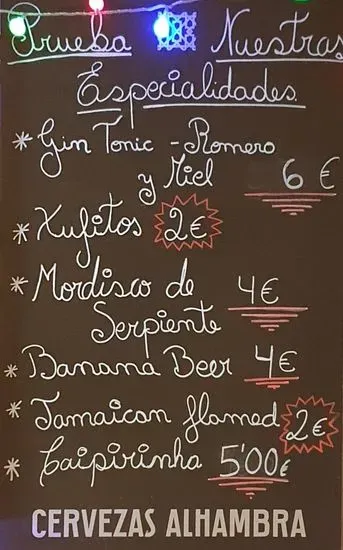 Prueba Nuestras
Especialidades
* Gin Tonic - Romero
y Miel 6 €
* Xufitos 2€
* Mordisco de 4€
Serpiente
* Banana Beer 4€
* Jamaican flamed 2€
* Caipirinha 5'00€
CERVEZAS ALHAMBRA